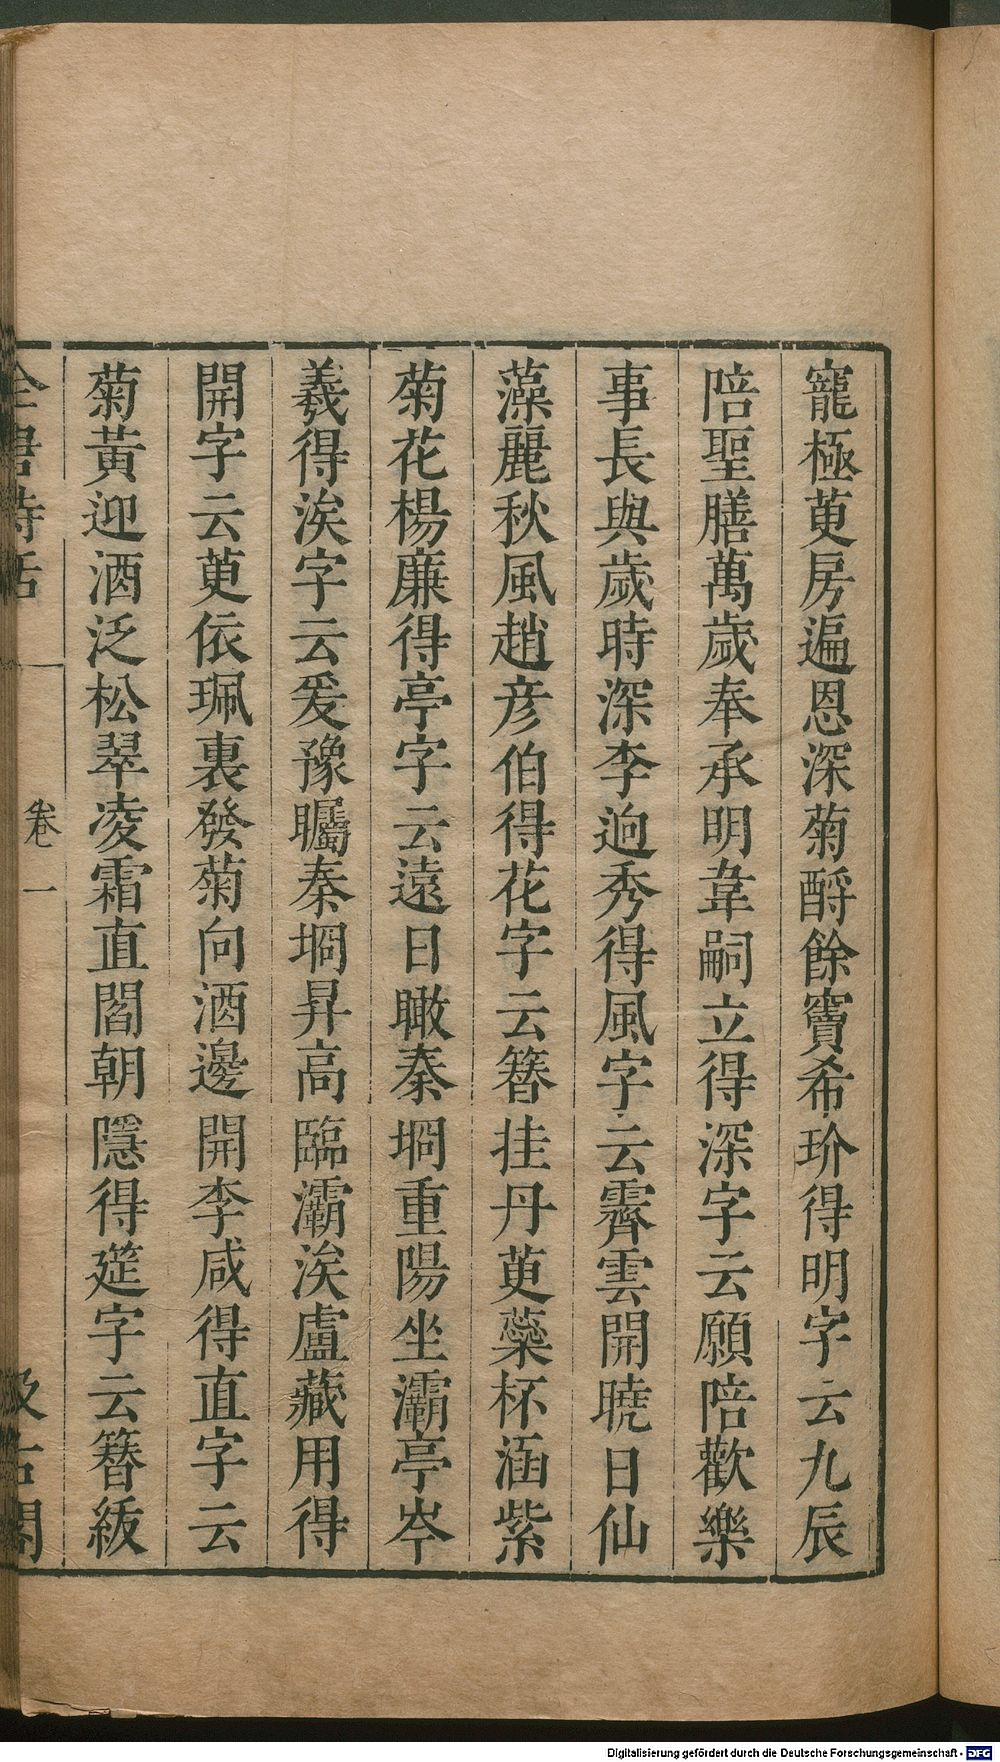 寵極萸房遍恩深菊酹餘竇希玠得明字云九辰
陪聖膳萬歲奉承明韋嗣立得深字云願陪歡樂
事長與歲時深李迥秀得風字云霽雲開曉日仙
藻麗秋風趙彥伯得花字云簪挂丹萸蘂杯涵紫
菊花楊廉得亭字云遠日瞰秦坰重陽坐灞亭岑
羲得涘字云爰豫矚秦坰昇高臨灞涘盧藏用得
開字云萸依珮裏發菊向酒邊開李咸得直字云
菊黃迎酒泛松翠凌霜直閻朝隱得筵字云簪紱
全唐詩話 卷一 汲古閣
Digitalisierung gefördert durch die Deutsche Forschungsgemeinschaft - DFG